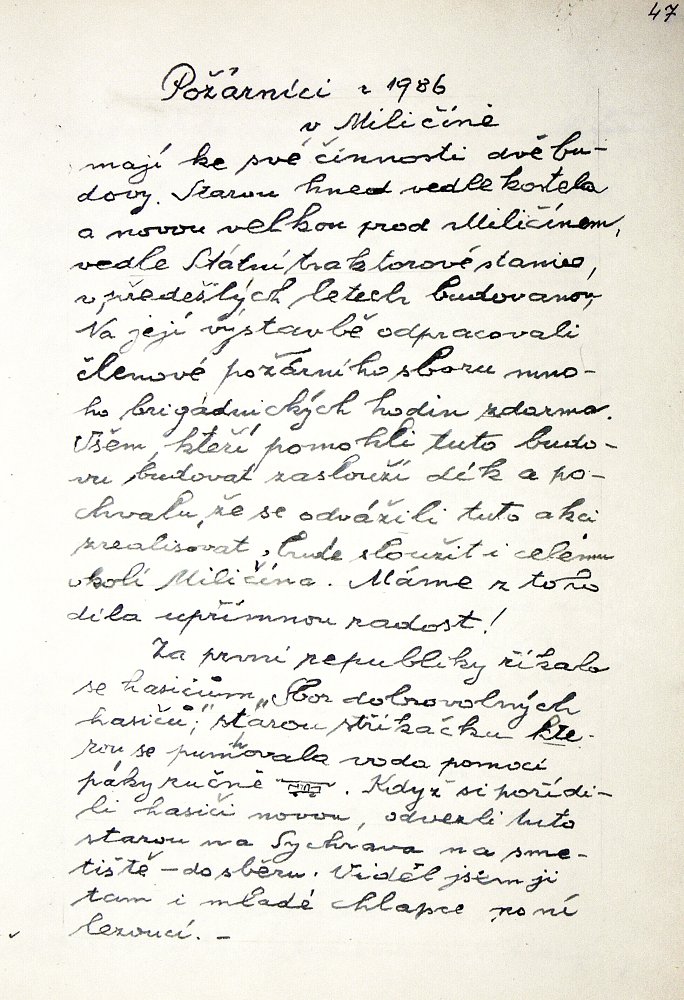 47
Požárníci r 1986
v Miličíně
mají ke své činnosti dvě bu-
dovy. Starou hned vedle kostela
a novou velkou prod Miličínem,
vedle Státní traktorové stanice,
v předešlých letech budovanou,
Na její výstavbě odpracovali
členové požárního sboru mno-
ho brigádnických hodin zdarma.
Všem, kteří pomohli tuto budo-
vu budovat zaslouží dík a po-
chvalu, že se odvážili tuto akci
zrealisovat, bude sloužit i celému
okolí Miličína. Máme z toho
díla upřímnou radost!
Za první republiky říkalo
se hasičům „Sbor dobrovolných
hasičů," starou stříkačku kte-
rou se pumpovala voda pomocí
páky ručně . Když si pořídi-
li hasiči novou, odvezli tuto
starou na Sychrava na sme-
tiště - do sběru. Viděl jsem ji
tam i mladé chlapce po ní
lezoucí. -